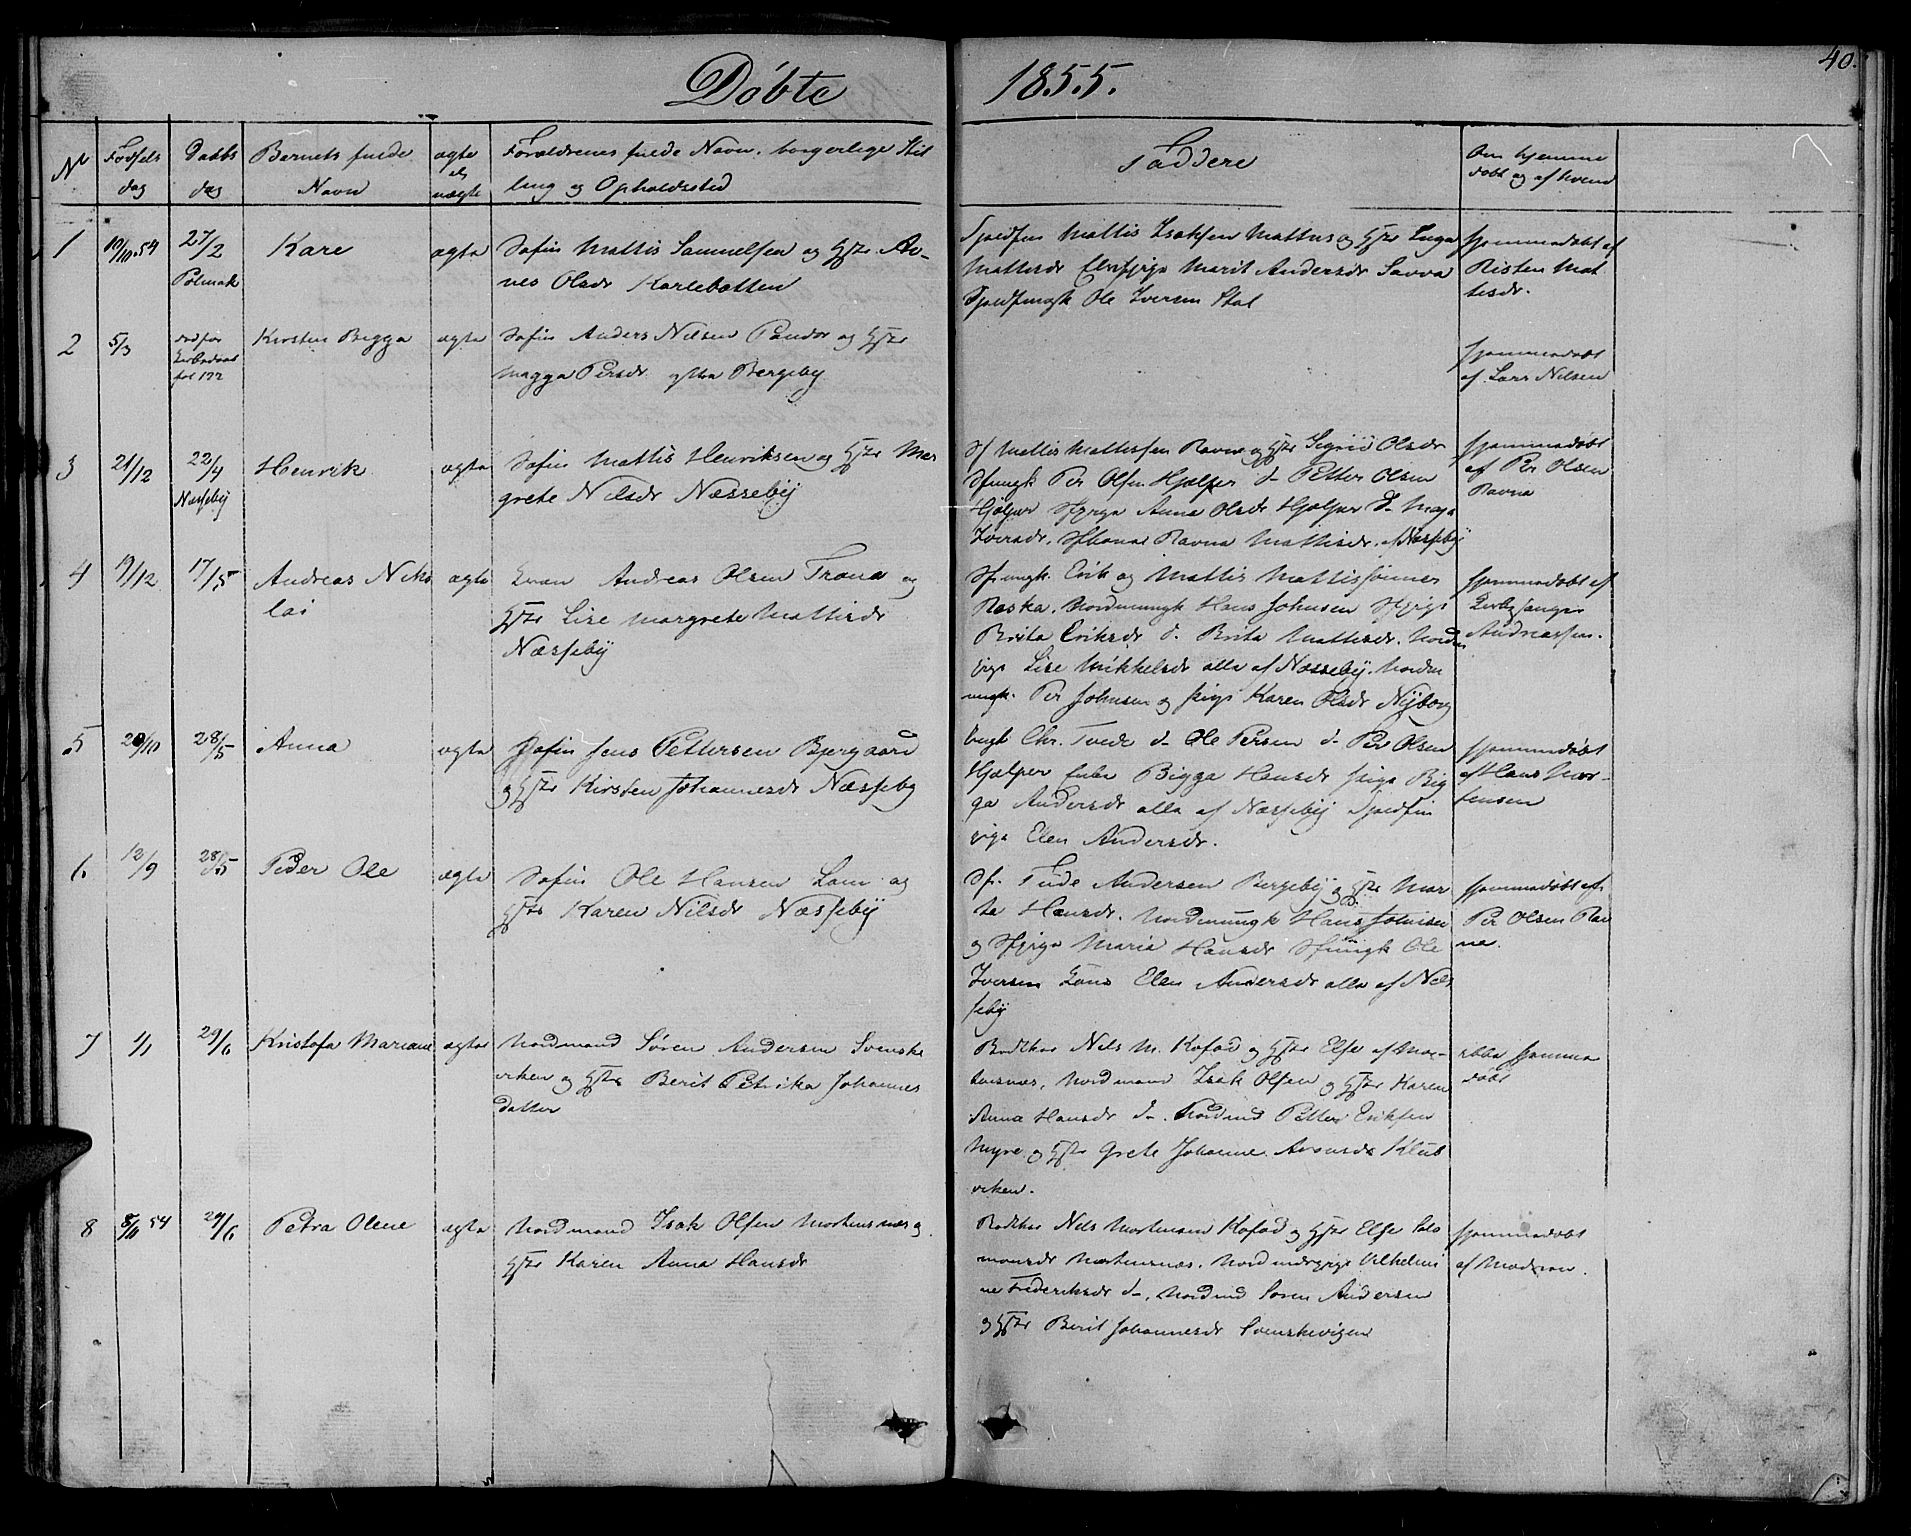 Døbte 1855.
40.
No
Fødsels dag
Daabs dag
Barnets fulde Navn
ægte el. uægte
Forældrenes fulde Navn, borgerlige Stil
ling og Opholdssted
Faddere
Om hjemme
døbt og af hvem
1
10/10.54
27/2
Polmak
Kare
ægte
Søfin Mattis Samuelsen og Hstr Ag-
nes Olsdr Karlebotten
Mattis Isaksen Mattus og Hstr Inga
Mattisdr Marit Andersdr Savva
Ole Iversen Stal
Hjemmedøbt af
Risten Mat
tisdr.
2
5/3
Kirsten Bigga
ægte
Søfin Anders Nilsen Pandor og Hstr
Magga Persdr Bergeby
Hjemmedøbt
af Lars Nilsen
3
21/12
22/4
Næsseby
Henrik
ægte
Søfin Mattis Henriksen og Hstr Mar
grete Nilsdr Næsseby
Sf Mattis Mattissen Ravna og Hstr Sigrid Olsdr
Sfungk Per Olsen Hjelper d- Petter Olsen
Hjelper Sfpige Anna Olsdr Hjelper d- Maja
Iversdr, Ravna Mattisdr. af Næsseby
Hjemmedøbt
af Per Olsen
Ravna
4
19/12
17/5
Andreas Niko
lai
ægte
Qvæn Andreas Olsen Trana og
Hstr Lise Margrete Mattisdr
Næsseby
Sfungk. Erik og Mattis Mattissønner
Raska. Nordmungk Hans Johnsen Sfpige
Brita Eriksdr d. Brita Mattisdr. Nordm
pige Lise Mikkelsdr alle af Næsseby. Nordm
ungk. Per Johnsen og pige Karen Olsdr Nyborg
Hjemmedøbt af
Kirkesanger
Andreassen.
5
20/10
28/5
Anna
ægte
Søfin Jens Pettersen Bjergaard
og Hstr Kirsten Johannesdr Næsseby
Ungk Chr. Tvede d- Ole Persen d- Per Olsen
Hjelper Enke Bigga Hansdr pige Big
ga Andersdr alle af Næsseby Sjøfin
pige Elen Andersdr.
Hjemmedøbt
af Hans Mor-
tensen
6
12/9
28/5
Peder Ole
ægte
Søfin Ole Hansen Lam og
Hstr Karen Nilsdr Næsseby
Sf. Tude Andersen Bergeby og Hstr Mar
ta Hansdr. Nordmungk Hans Johnsen
og Sfpige Maria Hansdr Sfungk Ole
Iversen Elen Andersdr alle af Næs
seby
Hjemmedøbt af
Per Olsen Rav
na.
7
1/1
29/6
Kristofa Mariane
ægte
Nordmand Søren Andersen Svenske
viken og Hstr Berit Petrika Johannes
datter
Nils M. Kofod og Hstr Else af Mor-
tensnæs, Nordmand Isak Olsen og Hstr Karen
Anna Hansdr d-. Nordmd Petter Eriksen
Myre og Hstr Grete Johanne Aronsdr Klub
viken.
ikke hjemme
døbt
8
8/11 54
29/6
Petra Oline
ægte
Nordmand Isak Olsen Mortensnæs og
Hstr Karen Anna Hansdr
Nils Mortensen Kofod og Hstr Else Salo
monsdr Mortensnæs, Nordmdspige Vilhelmi
ne Frederiksdr d-, Nordmd Søren Andersen
og Hstr Berit Johannesdr Svenskevigen
Hjemmedøbt
af Madsen.